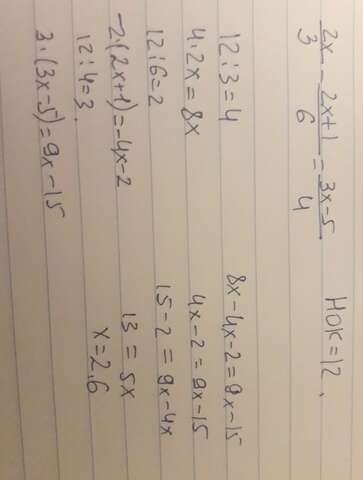 2x/3 - 2x+1/6 = 3x-5/4 НОК=12,
12:3=4
4·2x=8x
12:6=2
-2·(2x+1)=-4x-2
12:4=3.
3·(3x-5)=9x-15
8x-4x-2=9x-15
4x-2=9x-15
15-2=9x-4x
13=5x
x=2,6